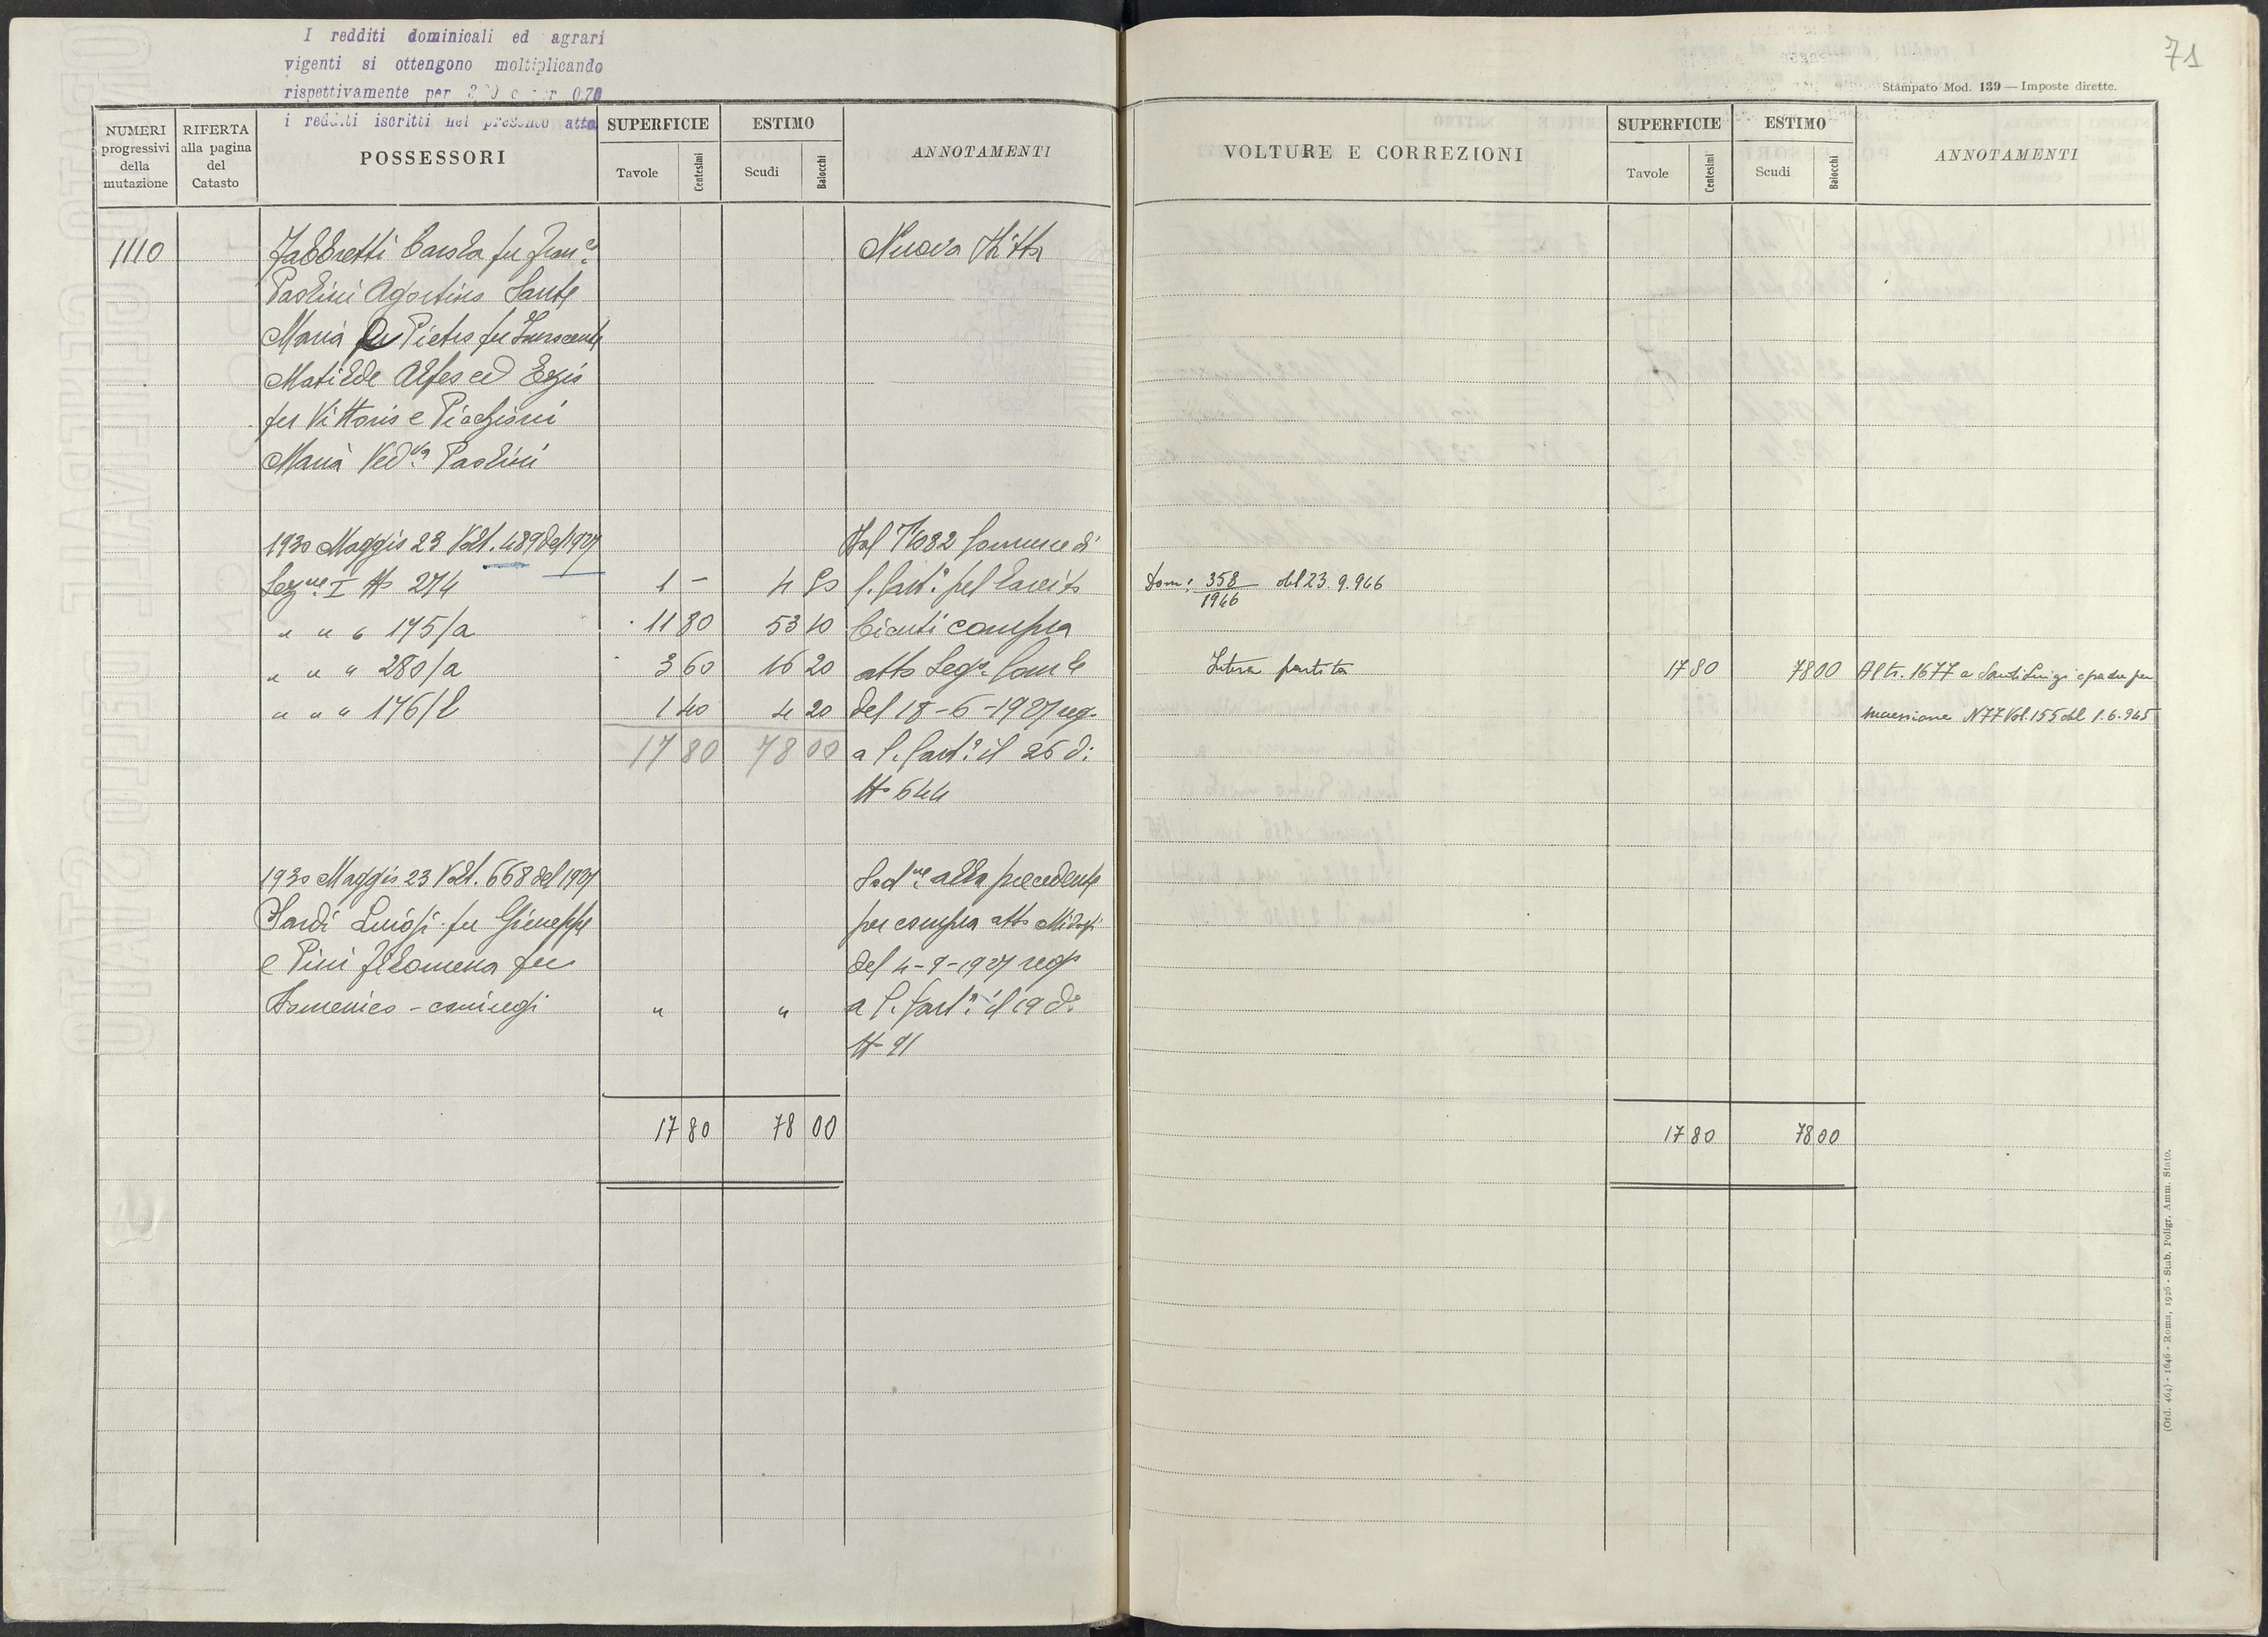 I redditi dominicali ed agrari
vigenti si ottengono moltiplicando
rispettivamente per e per 0.70
i redditi iscritti nel presente atto
NUMERI progressivi della mutazione
RIFERTA alla pagina del Catasto
POSSESSORI
SUPERFICIE
Tavole
Centesimi
ESTIMO
Scudi
Baiocchi
ANNOTAMENTI
1110
Fabbretti Carola fu Fran.co
Nuova Ditta
Paolini Agostino Sante
Maria Pietro fu Innocente
Matilde Alfeo ed Ezio
fu Vittorio e
Maria Ved.va Paolini
1930 Maggio 23 Volt. 489 del 1927
Dal N 1082 Comune di
Sez.ne I N 274 1 - 4 50
" " " 175/a 11 80 53 10 compra
" " " 280/a 3 60 16 20 atto Seg.
" " " 176/b 1 40 4 20 del 18-6-1927 reg.
17 80 78 00 a il 26 d:
N 644
1930 Maggio 23 Volt. 668 del 1927
alla precedente
Luigi fu Giuseppe
per compra atto
e Pini Filomena fu
del 4-9-1927 reg
Domenico - coniugi " "
a il 19 d:
N 91
17 80 78 00
71
Stampato Mod. 139 — Imposte dirette.
VOLTURE E CORREZIONI
SUPERFICIE
Tavole
Centesimi
ESTIMO
Scudi
Baiocchi
ANNOTAMENTI
Dom: 358/1946 del 23.9.946
Intera partita 17 80 78 00 Al tr. 1677 a Luigi
successione N 77 Vol. 155 del 1.6.945
17 80 78 00
(Ord. 464) - 1646 - Roma, 1926 - Stab. Poligr. Amm. Stato.